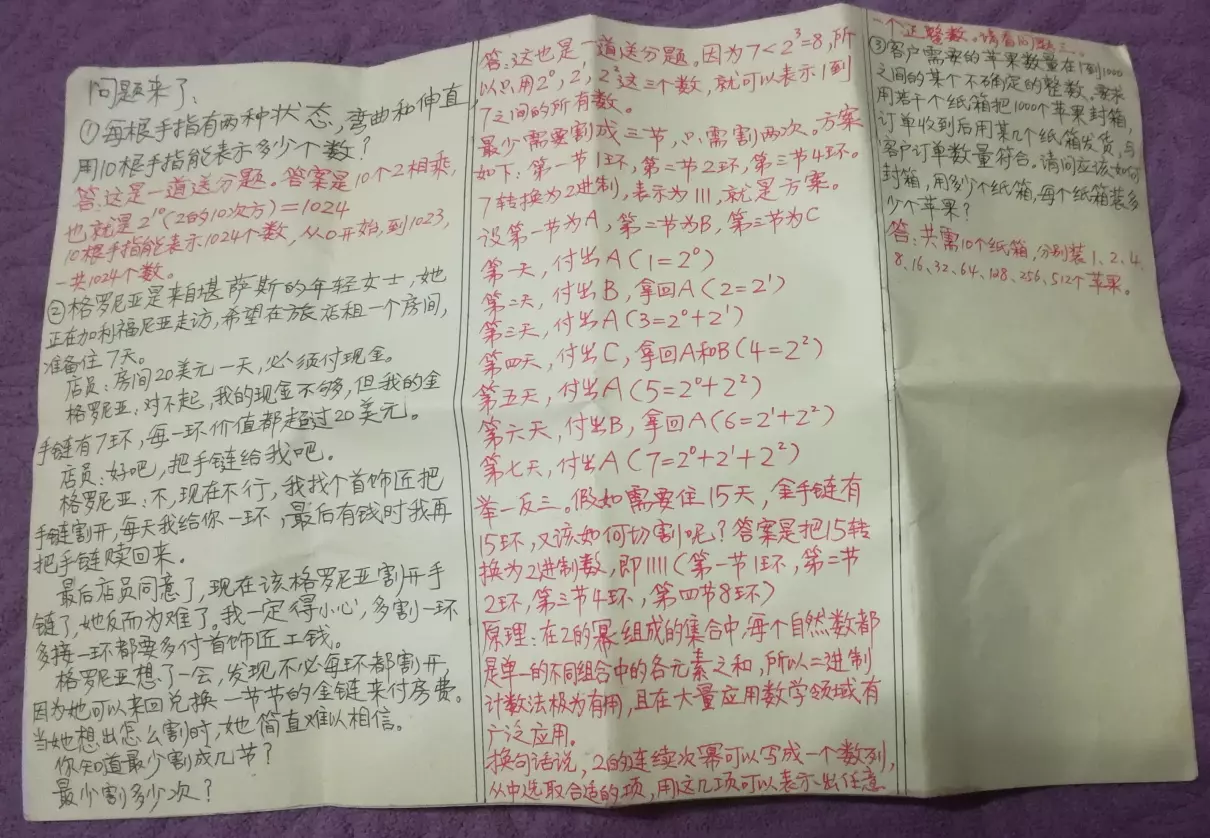 问题来了,
①每根手指有两种状态,弯曲和伸直,
用10根手指能表示多少个数?
答:这是一道送分题。答案是10个2相乘,
也就是2¹⁰(2的10次方)=1024
10根手指能表示1024个数,从0开始,到1023,
一共1024个数。
②格罗尼亚是来自堪萨斯的年轻女士,她
正在加利福尼亚走访,希望在旅店租一个房间,
准备住7天。
店员:房间20美元一天,必须付现金。
格罗尼亚:对不起,我的现金不够,但我的金
手链有7环,每一环价值都超过20美元。
店员:好吧,把手链给我吧。
格罗尼亚:不,现在不行,我找个首饰匠把
手链割开,每天我给你一环,最后有钱时我再
把手链赎回来。
最后店员同意了,现在该格罗尼亚割开手
链了,她反而为难了。我一定得小心,多割一环
多接一环都要多付首饰匠工钱。
格罗尼亚想了一会,发现不必每环都割开,
因为她可以来回兑换一节节的金链来付房费。
当她想出怎么割时,她简直难以相信。
你知道最少割成几节?
最少割多少次?
答:这也是一道送分题。因为7<2³=8,所
以只用2⁰,2¹,2²这三个数,就可以表示1到
7之间的所有数。
最少需要割成三节,只需割两次。方案
如下:第一节1环,第二节2环,第三节4环。
7转换为2进制,表示为111,就是方案。
设第一节为A,第二节为B,第三节为C
第一天,付出A(1=2⁰)
第二天,付出B,拿回A(2=2¹)
第三天,付出A(3=2⁰+2¹)
第四天,付出C,拿回A和B(4=2²)
第五天,付出A(5=2⁰+2²)
第六天,付出B,拿回A(6=2¹+2²)
第七天,付出A(7=2⁰+2¹+2²)
举一反三。假如需要住15天,金手链有
15环,又该如何切割呢?答案是把15转
换为2进制数,即1111(第一节1环,第二节
2环,第三节4环,第四节8环)
原理:在2的幂组成的集合中,每个自然数都
是单一的不同组合中的各元素之和,所以二进制
计数法极为有用,且在大量应用数学领域有
广泛应用。
换句话说,2的连续次幂可以写成一个数列,
从中选取合适的项,用这几项可以表示出任意
一个正整数。请看问题三。
③客户需要的苹果数量在1到1000
之间的某个不确定的整数,要求
用若干个纸箱把1000个苹果封箱,
订单收到后用某几个纸箱发货,与
客户订单数量符合。请问应该如何
封箱,用多少个纸箱,每个纸箱装多
少个苹果?
答:共需10个纸箱,分别装1、2、4、
8、16、32、64、128、256、512个苹果。